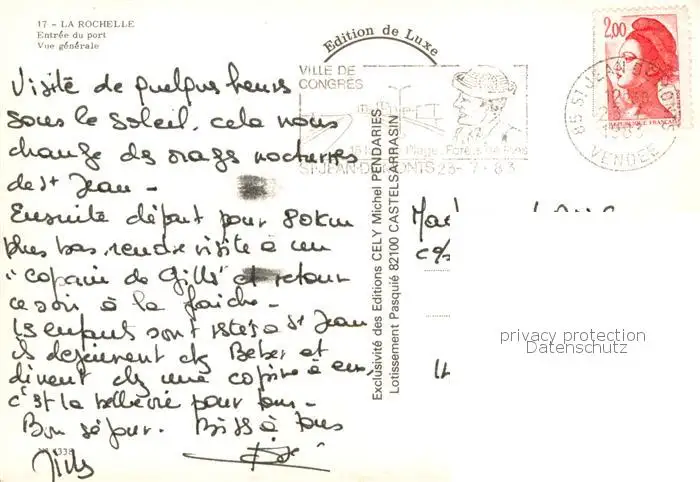 17 - LA ROCHELLE
Entrée du port
Vue générale
Edition de Luxe
VILLE DE
CONGRÈS
ST-JEAN-DE-MONTS 25-7-83
2,00
REPUBLIQUE FRANÇAISE
85 ST JEAN DE MONTS
VENDEE
Visite de quelques heures
sous le soleil, cela nous
change des orages nocturnes
de St Jean -
Ensuite départ pour 80 km
plus bas, rendre visite à un
"copain de Gills" et retour
ce soir à la fraiche -
Les enfants sont restés à St Jean
ils déjeunent chez Beber et
dinent chez une copine à eux,
c'est la belle vie pour tous -
Bon séjour. Bises à tous
Gills
N° 1338
Exclusivité des Editions CELY Michel PENDARIES
Lotissement Pasquié 82100 CASTELSARRASIN
privacy protection
Datenschutz